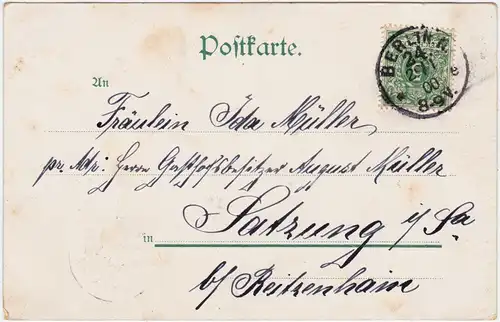 Postkarte.
BERLIN N.
24
29 00
8-9V.
An
Fräulein Ida Müller
pr. Adr: Herrn Gasthofsbesitzer August Müller
in Satzung i/Sa
b/ Reitzenhain